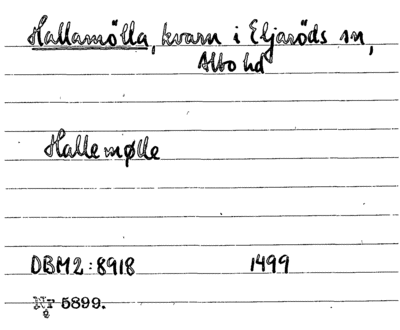 Hallamölla, kvarn i Eljaröds sn,
Albo hd
Hallemølle
DBM2:8918 1499
Nr 5899.